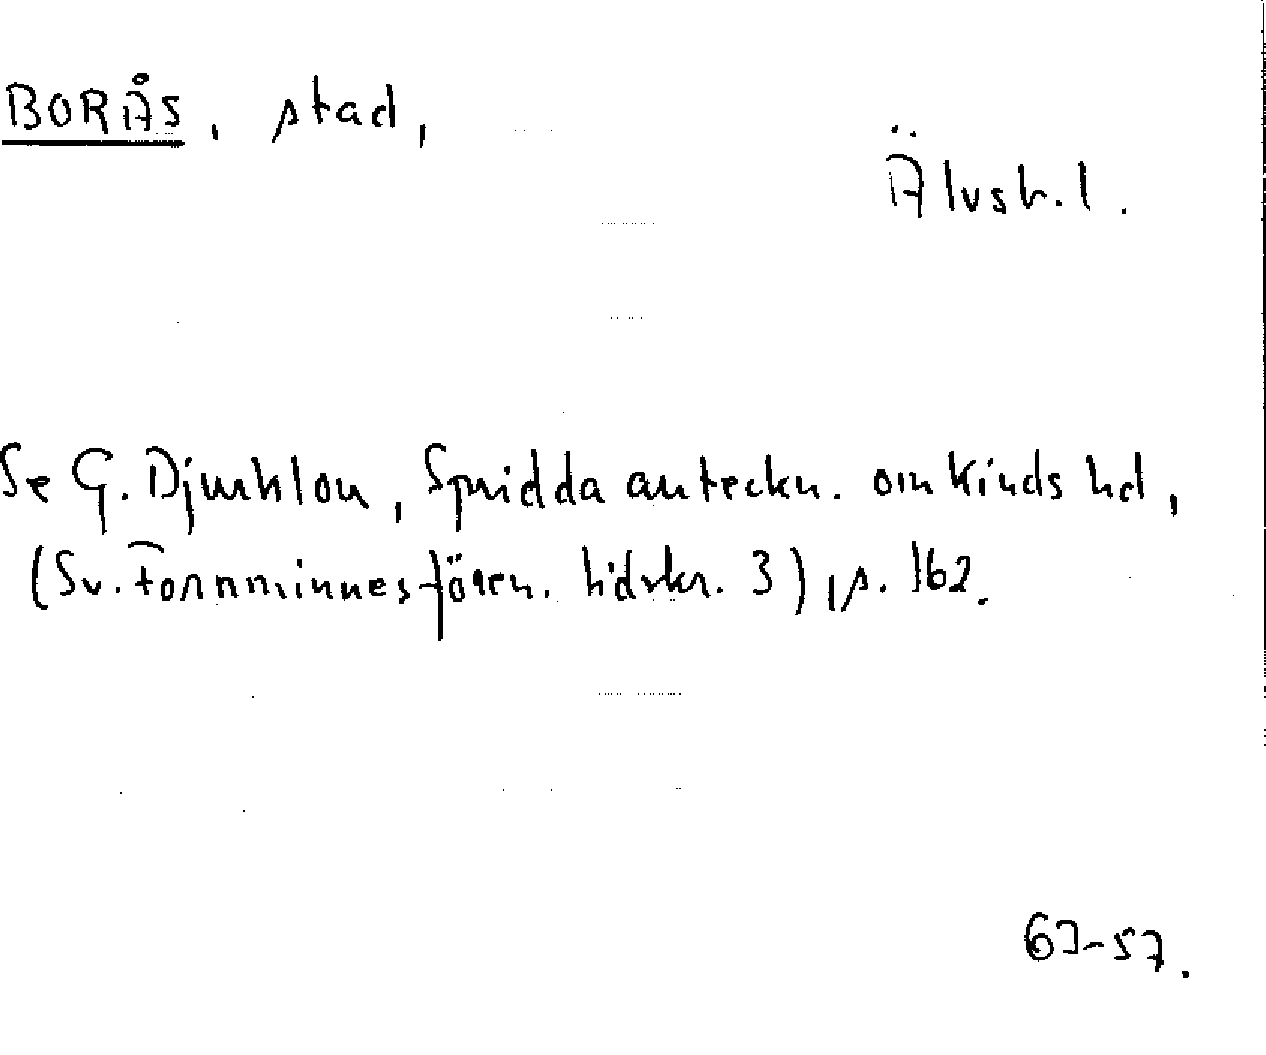 BORÅS, stad,
Älvsb. l.
Se G. Djurklou, Spridda anteckn. om Kinds hd,
(Sv. Fornminnesfören. tidskr. 3), s. 162.
63-57.